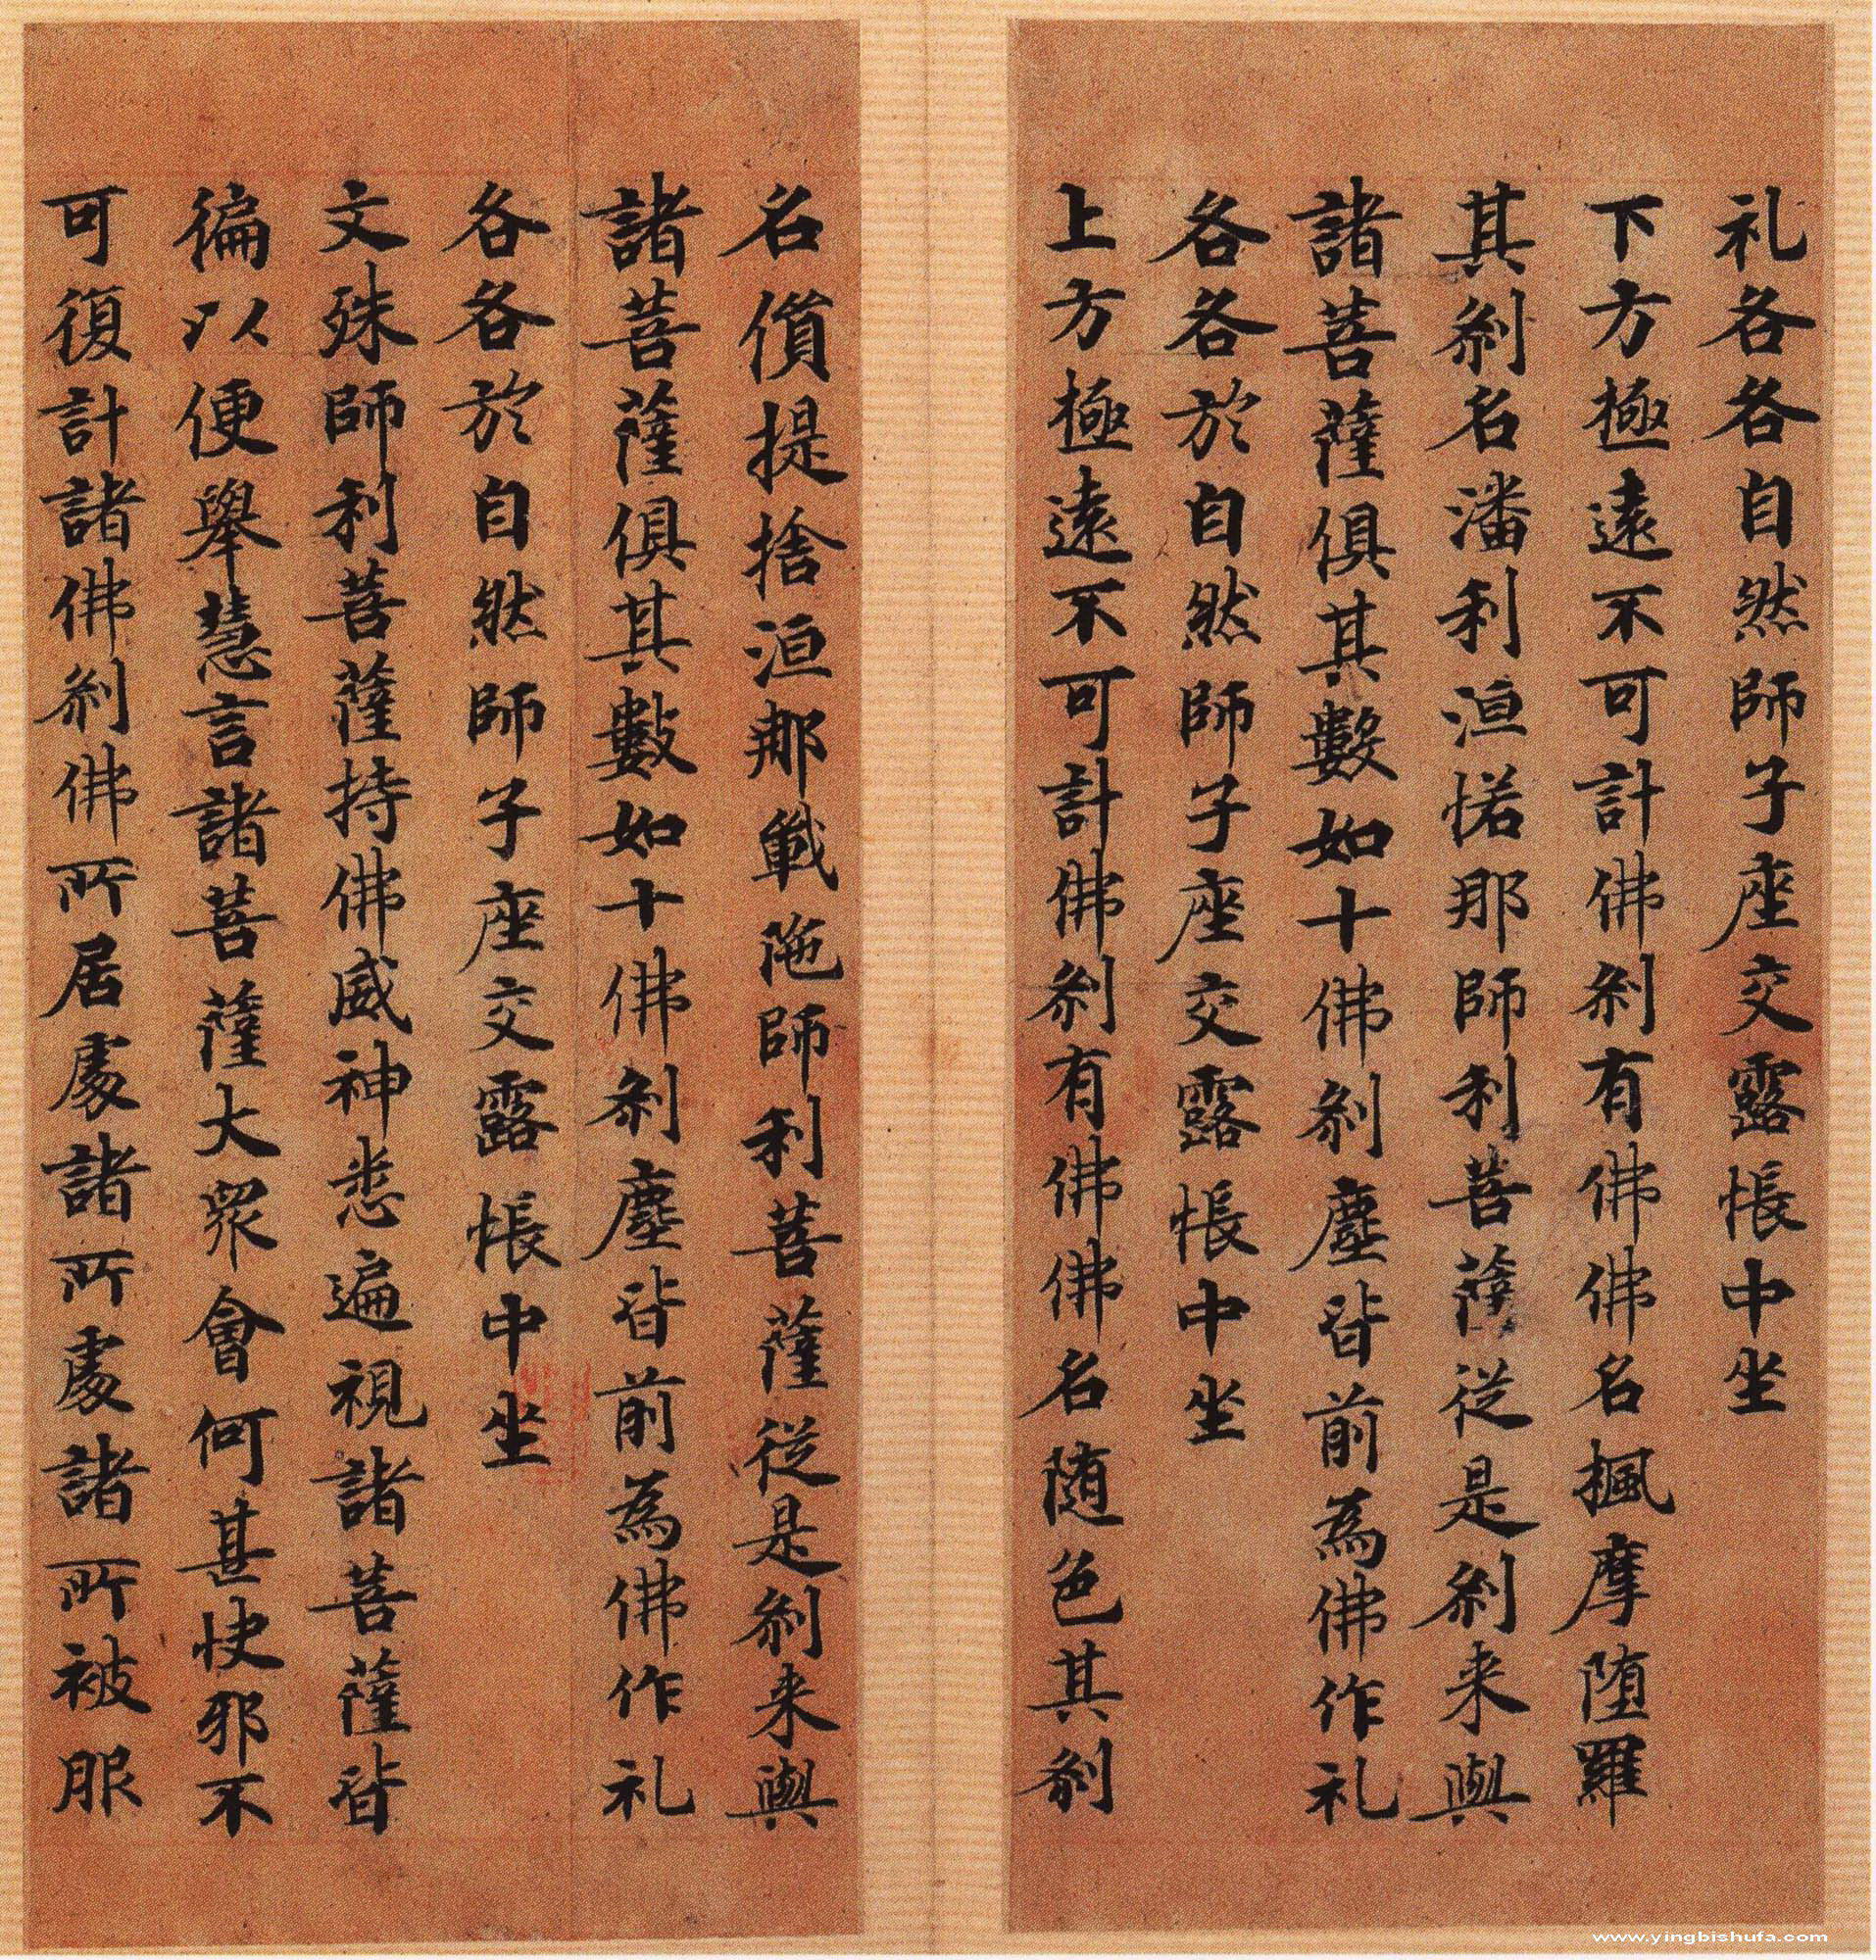 礼各各自然師子座交露帳中坐
下方極遠不可計佛刹有佛佛名楓摩堕羅
其刹名潘利洹偌那師利菩薩従是刹来與
諸菩薩俱其數如十佛刹塵皆前為佛作礼
各各於自然師子座交露帳中坐
上方極遠不可計佛刹有佛佛名随色其刹
名償提捨洹那戴陁師利菩薩従是刹来與
諸菩薩俱其數如十佛刹塵皆前為佛作礼
各各於自然師子座交露帳中坐
文殊師利菩薩持佛威神悉遍視諸菩薩皆
徧以便舉慧言諸菩薩大衆會何甚快邪不
可復計諸佛刹佛所居處諸所處諸所被服
www.yingbishufa.com